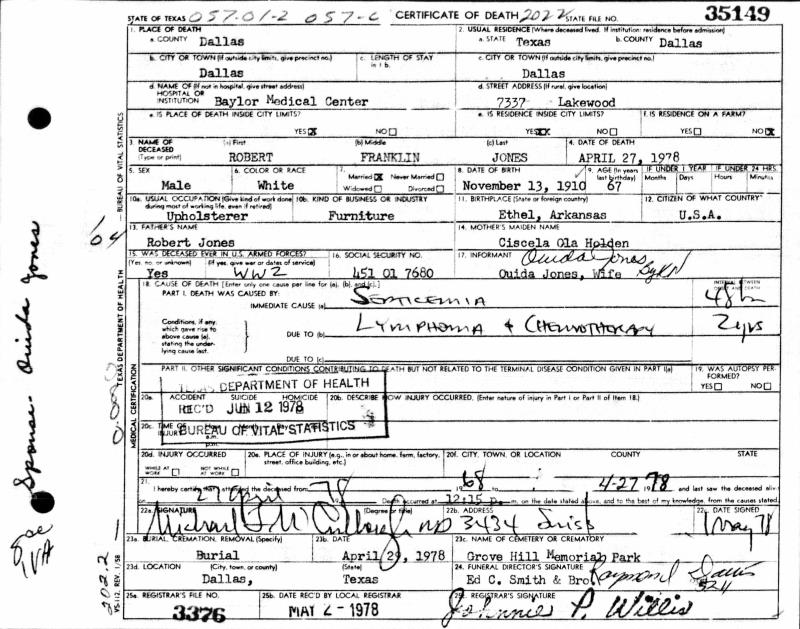 STATE OF TEXAS 057-01-2 057-C CERTIFICATE OF DEATH 2022 STATE FILE NO. 35149
1. PLACE OF DEATH
a. COUNTY Dallas
2. USUAL RESIDENCE (Where deceased lived. If institution: residence before admission)
a. STATE Texas b. COUNTY Dallas
b. CITY OR TOWN (If outside city limits, give precinct no.) Dallas
c. LENGTH OF STAY in 1 b.
c. CITY OR TOWN (If outside city limits, give precinct no.) Dallas
d. NAME OF (If not in hospital, give street address) HOSPITAL OR INSTITUTION Baylor Medical Center
d. STREET ADDRESS (If rural, give location) 7337 Lakewood
e. IS PLACE OF DEATH INSIDE CITY LIMITS? YES X NO
e. IS RESIDENCE INSIDE CITY LIMITS? YES XX NO
f. IS RESIDENCE ON A FARM? YES NO X
3. NAME OF DECEASED (Type or print)
(a) First ROBERT
(b) Middle FRANKLIN
(c) Last JONES
4. DATE OF DEATH APRIL 27, 1978
5. SEX Male
6. COLOR OR RACE White
7. Married X Never Married Widowed Divorced
8. DATE OF BIRTH November 13, 1910
9. AGE (In years last birthday) 67
IF UNDER 1 YEAR Months Days
IF UNDER 24 HRS. Hours Minutes
10a. USUAL OCCUPATION (Give kind of work done during most of working life, even if retired) Upholsterer
10b. KIND OF BUSINESS OR INDUSTRY Furniture
11. BIRTHPLACE (State or foreign country) Ethel, Arkansas
12. CITIZEN OF WHAT COUNTRY U.S.A.
13. FATHER'S NAME Robert Jones
14. MOTHER'S MAIDEN NAME Ciscela Ola Holden
15. WAS DECEASED EVER IN U.S. ARMED FORCES? (Yes, no, or unknown) (If yes, give war or dates of service) Yes WW2
16. SOCIAL SECURITY NO. 451 01 7680
17. INFORMANT Ouida Jones
Ouida Jones, Wife
18. CAUSE OF DEATH [Enter only one cause per line for (a), (b), and (c).]
INTERVAL BETWEEN ONSET AND DEATH
PART I. DEATH WAS CAUSED BY:
IMMEDIATE CAUSE (a) SEPTICEMIA 48 hr
Conditions, if any, which gave rise to above cause (a), stating the underlying cause last.
DUE TO (b) LYMPHOMA + CHEMOTHERAPY 2 yrs
DUE TO (c)
PART II. OTHER SIGNIFICANT CONDITIONS CONTRIBUTING TO DEATH BUT NOT RELATED TO THE TERMINAL DISEASE CONDITION GIVEN IN PART I(a)
19. WAS AUTOPSY PERFORMED? YES NO
TEXAS DEPARTMENT OF HEALTH
REC'D JUN 12 1978
BUREAU OF VITAL STATISTICS
20a. ACCIDENT SUICIDE HOMICIDE
20b. DESCRIBE HOW INJURY OCCURRED. (Enter nature of injury in Part I or Part II of Item 18.)
20c. TIME OF INJURY a.m. p.m.
20d. INJURY OCCURRED WHILE AT WORK NOT WHILE AT WORK
20e. PLACE OF INJURY (e.g., in or about home, farm, factory, street, office building, etc.)
20f. CITY, TOWN, OR LOCATION COUNTY STATE
21. I hereby certify that I attended the deceased from 1968 4-27 1978 and last saw the deceased alive
on 27 April 78 Death occurred at 12:15 p. m. on the date stated above, and to the best of my knowledge, from the causes stated.
22a. SIGNATURE (Degree or title) MD
22b. ADDRESS 3434
22c. DATE SIGNED 1 May 78
23a. BURIAL, CREMATION, REMOVAL (Specify) Burial
23b. DATE April 29, 1978
23c. NAME OF CEMETERY OR CREMATORY Grove Hill Memorial Park
23d. LOCATION (City, town, or county) (State) Dallas, Texas
24. FUNERAL DIRECTOR'S SIGNATURE Ed C. Smith & Bro Raymond Davis 5211
25a. REGISTRAR'S FILE NO. 3376
25b. DATE REC'D BY LOCAL REGISTRAR MAY 2 - 1978
25c. REGISTRAR'S SIGNATURE Johnnie P. Willis
TEXAS DEPARTMENT OF HEALTH BUREAU OF VITAL STATISTICS
MEDICAL CERTIFICATION
VS-112, REV. 1/58
202.2
1/04
Spouse - Ouida Jones
See IVA